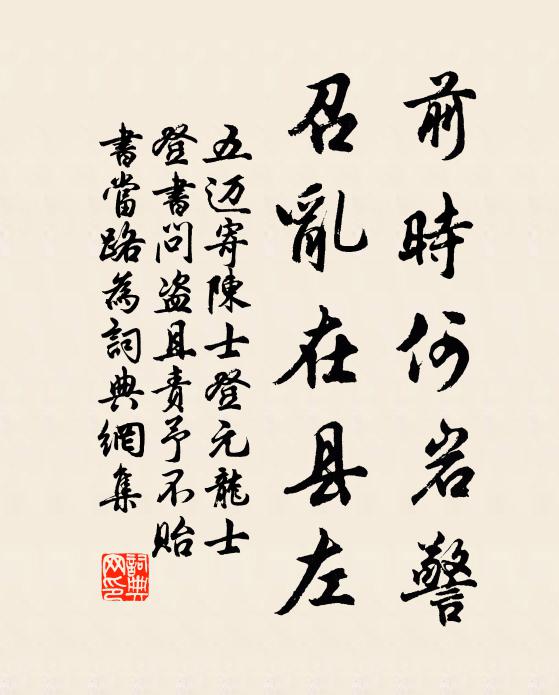 前時何岩警
召亂在县左
五迈寄陳士登元龍士
登書问盗且责予不贻
書當路為詞典網集
詞典網印